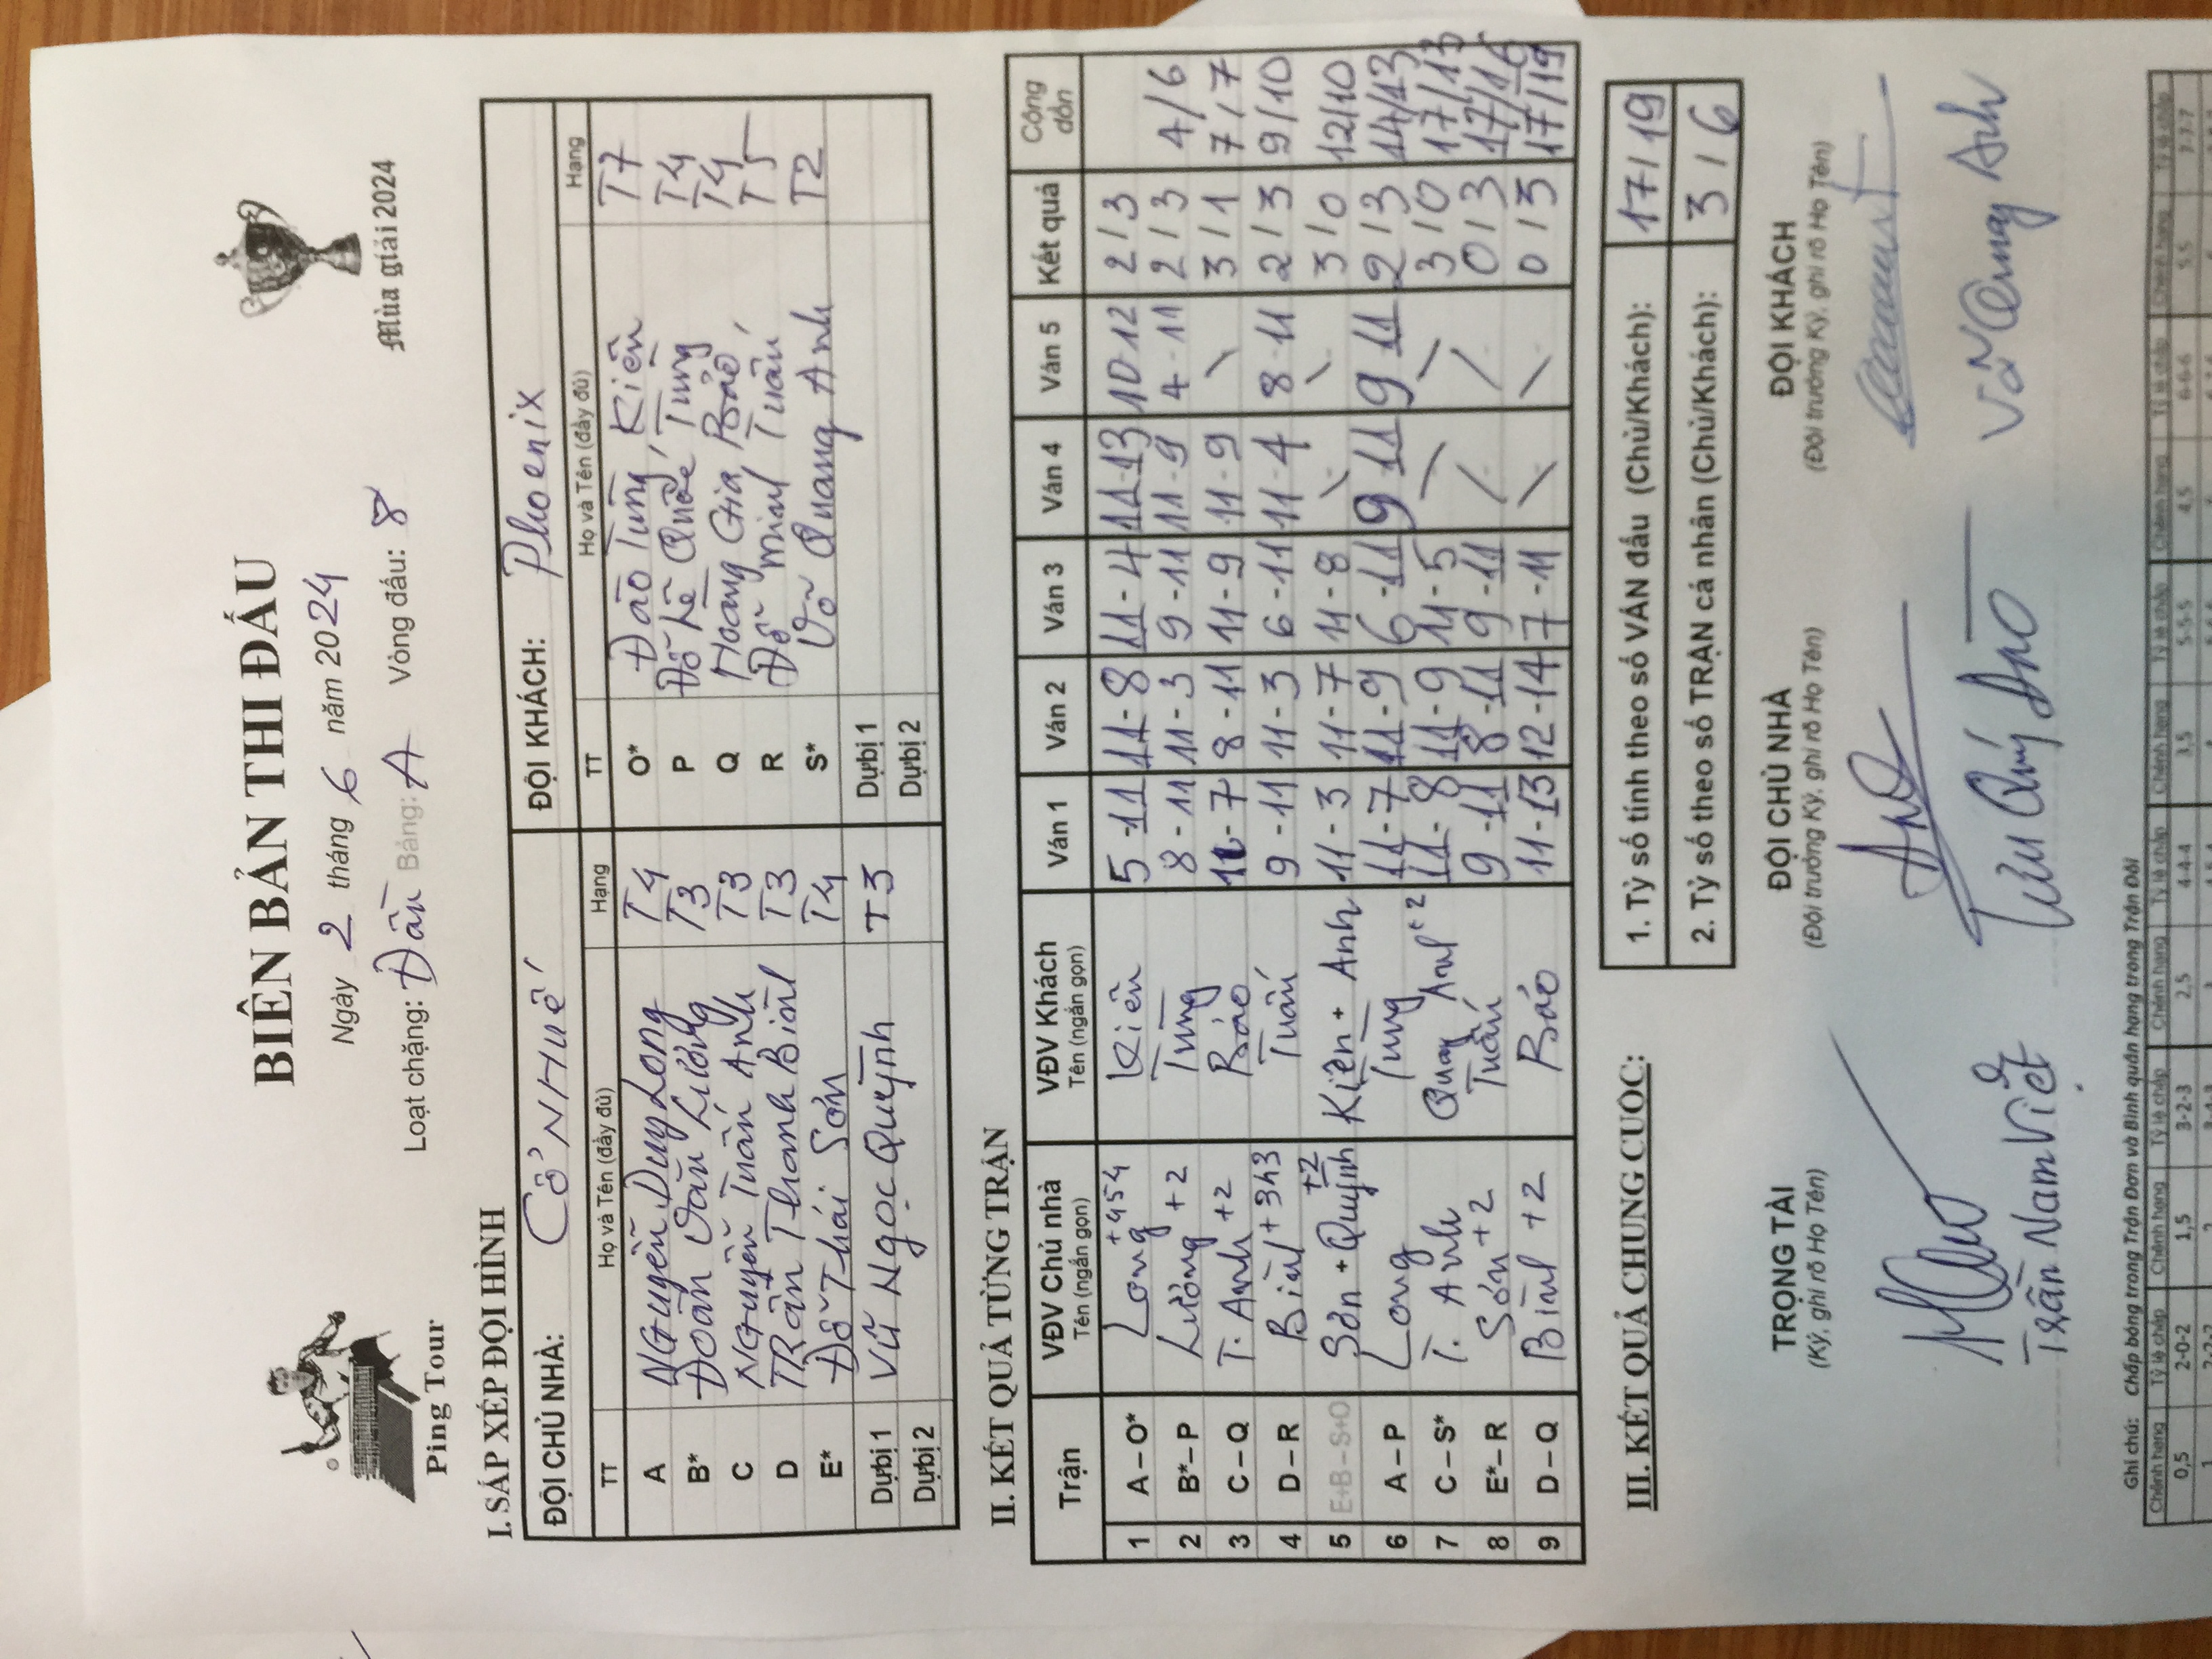 BIÊN BẢN THI ĐẤU
Ngày 2 tháng 6 năm 2024
Loạt chặng: Dần Bảng: A Vòng đấu: 8
Ping Tour
Mùa giải 2024
I. SẮP XẾP ĐỘI HÌNH
ĐỘI CHỦ NHÀ: CỔ NHUẾ ĐỘI KHÁCH: Phoenix
TT Họ và Tên (đầy đủ) Hạng TT Họ và Tên (đầy đủ) Hạng
A Nguyễn Duy Long T4 O* Đào Tùng Kiên T7
B* Đoàn Văn Lương T3 P Đỗ Lê Quốc Tùng T4
C Nguyễn Tuấn Anh T3 Q Hoàng Gia Bảo T4
D Trần Thanh Bình T3 R Đỗ Minh Tuấn T5
E* Đỗ Thái Sơn T4 S* Võ Quang Anh T2
Dự bị 1 Vũ Ngọc Quỳnh T3 Dự bị 1
Dự bị 2 Dự bị 2
II. KẾT QUẢ TỪNG TRẬN
Trận VĐV Chủ nhà Tên (ngắn gọn) VĐV Khách Tên (ngắn gọn) Ván 1 Ván 2 Ván 3 Ván 4 Ván 5 Kết quả Cộng dồn
1 A – O* Long +454 Kiên 5-11 11-8 11-4 11-13 10-12 2/3
2 B* – P Lương +2 Tùng 8-11 11-3 9-11 11-9 4-11 2/3 4/6
3 C – Q T. Anh +2 Bảo 11-7 8-11 11-9 11-9 \ 3/1 7/7
4 D – R Bình +343 Tuấn 9-11 11-3 6-11 11-4 8-11 2/3 9/10
5 E+B – S+O Sơn + Quỳnh +2 Kiên + Anh 11-3 11-7 11-8 \ \ 3/0 12/10
6 A – P Long Tùng 11-7 11-9 6-11 9-11 9-11 2/3 14/13
7 C – S* T. Anh Quang Anh +2 11-8 11-9 11-5 / / 3/0 17/13
8 E* – R Sơn +2 Tuấn 9-11 8-11 9-11 / / 0/3 17/16
9 D – Q Bình +2 Bảo 11-13 12-14 7-11 \ \ 0/3 17/19
III. KẾT QUẢ CHUNG CUỘC:
1. Tỷ số tính theo số VÁN đấu (Chủ/Khách): 17/19
2. Tỷ số theo số TRẬN cá nhân (Chủ/Khách): 3/6
TRỌNG TÀI ĐỘI CHỦ NHÀ ĐỘI KHÁCH
(Ký, ghi rõ Họ Tên) (Đội trưởng Ký, ghi rõ Họ Tên) (Đội trưởng Ký, ghi rõ Họ Tên)
Trần Nam Việt Võ Quang Anh
Ghi chú: Chấp bóng trong Trận Đơn và Bình quân hạng trong Trận Đôi
Chênh hạng Tỷ lệ chấp Chênh hạng Tỷ lệ chấp Chênh hạng Tỷ lệ chấp Chênh hạng Tỷ lệ chấp Chênh hạng Tỷ lệ chấp Chênh hạng Tỷ lệ chấp Chênh hạng Tỷ lệ chấp
0,5 2-0-2 1,5 3-2-3 2,5 4-4-4 3,5 5-5-5 4,5 6-6-6 5,5 7-7-7